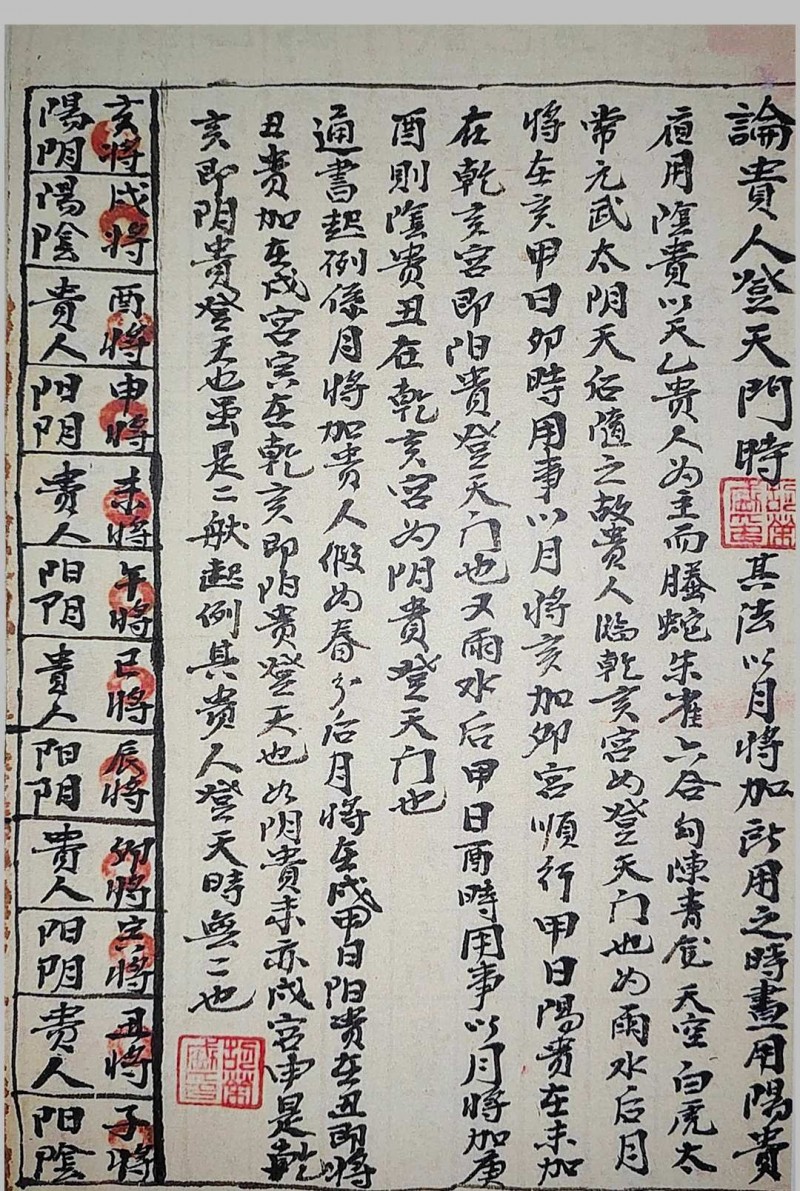 論貴人登天門時 其法以月將加所用之時晝用陽貴
夜用陰貴以天乙贵人为主而螣蛇朱雀六合勾陳青龙天空白虎太
常元武太阴天后隨之故贵人臨乾亥宮为登天门也如雨水后月
將在亥甲日卯時用事以月將亥加卯宮順行甲日陽貴在未加
在乾亥宮即阳贵登天门也又雨水后甲日酉時用事以月將加庚
酉則陰贵丑在乾亥宮为阴贵登天门也
通書起例係月將加贵人假如春分后月將在戌甲日阳贵在丑即將
丑贵加在戌宮寅在乾亥即阳贵登天也如阴贵未亦戌宮申是乾
亥即阴贵登天也虽是二般起例其贵人登天時無二也
亥將 陽阴
戌將 陽陰
酉將 貴人
申將 阳阴
未將 貴人
午將 阳阴
巳將 貴人
辰將 阳阴
卯將 貴人
寅將 阳阴
丑將 貴人
子將 阳陰